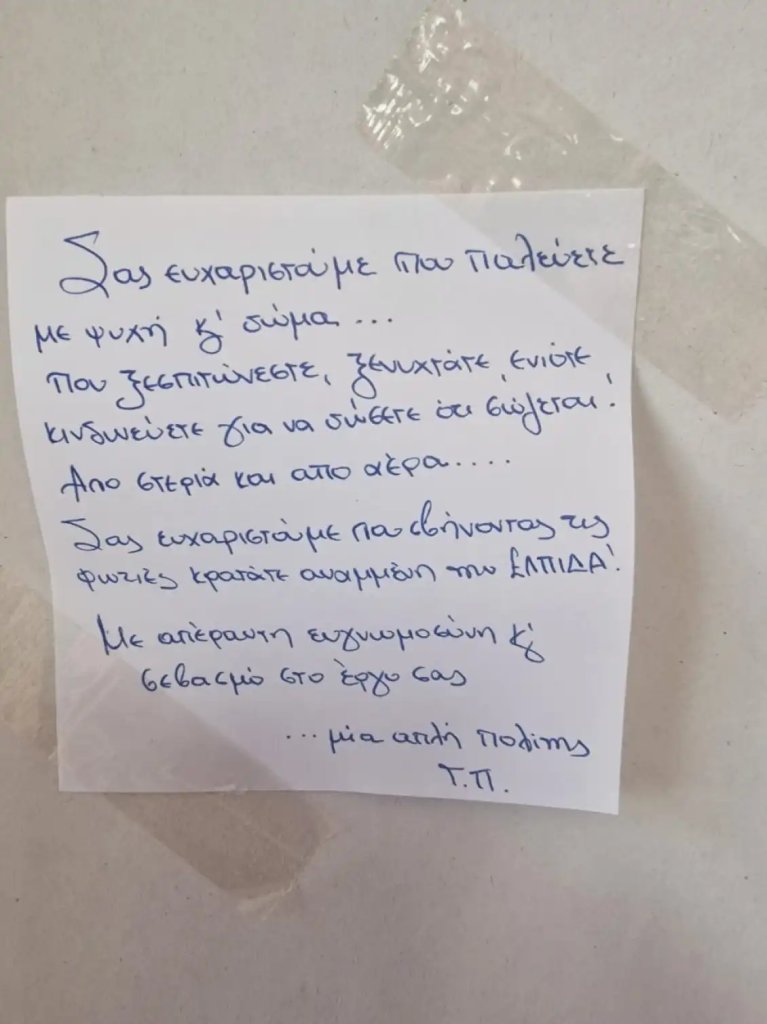 Σας ευχαριστούμε που παλεύετε
με ψυχή κ' σώμα...
που ξεσπιτώνεστε, ξενυχτάτε, ενίοτε
κινδυνεύετε για να σώσετε ότι σώζεται!
Απο στεριά και απο αέρα....
Σας ευχαριστούμε που σβήνοντας τις
φωτιές κρατάτε αναμμένη την ΕΛΠΙΔΑ!
Με απέραντη ευγνωμοσύνη κ'
σεβασμό στο έργο σας
...μία απλή πολίτης
Τ.Π.